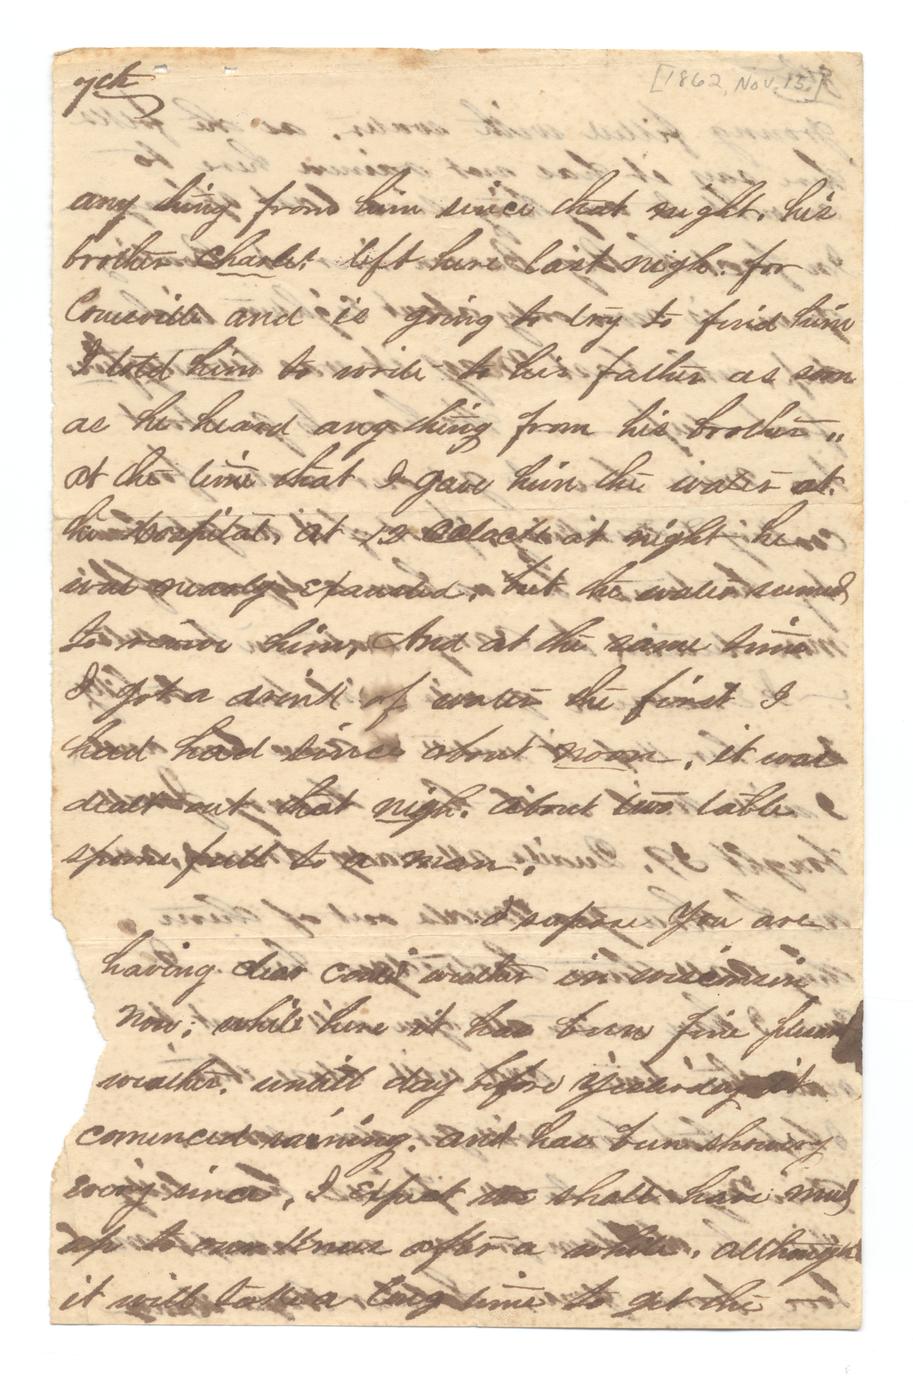 7th
[1862, Nov. 15.]
any thing from him since that night. his
brother Charles. left here last nigh. for
Louisville and is going to try to find him
I told him to write to his father as soon
as he heard any thing from his brother ,,
at the time that I gave him the water at.
the hospital, at 12 oclock at night he
was nearly exausted, but the water seemed
to revive him, And at the same time
I got a drink of water the first I
had had since about noon, it was
dealt out that nigh. about two table
spoons full to a man.
I supose You are
having clear could weather in wisconsin
now; while here it has been fine pleasant
weather. untill day before Yesterday it
comenced raining. and has been showery
every since, I expect we shall have mud
up to our Knees after a while. although
it will take a long time to get the